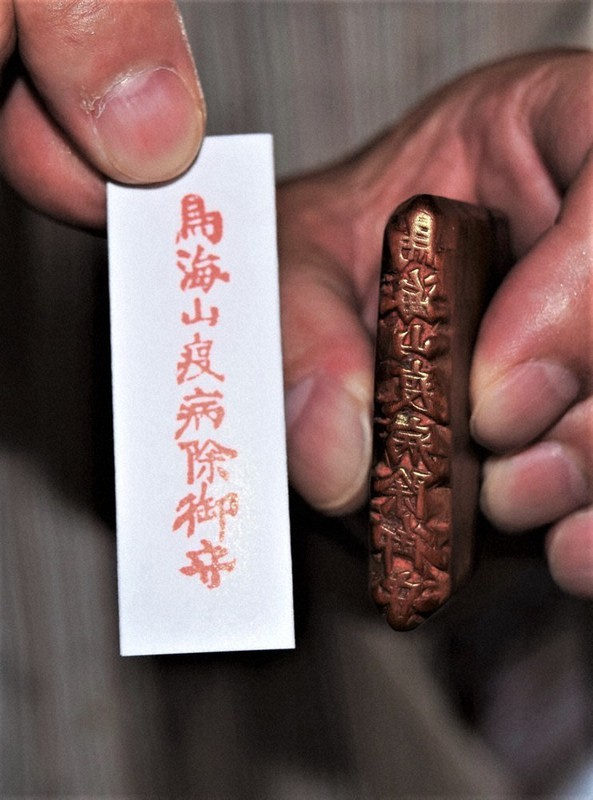 鳥海山疫病除御守
鳥海山疫病除御守